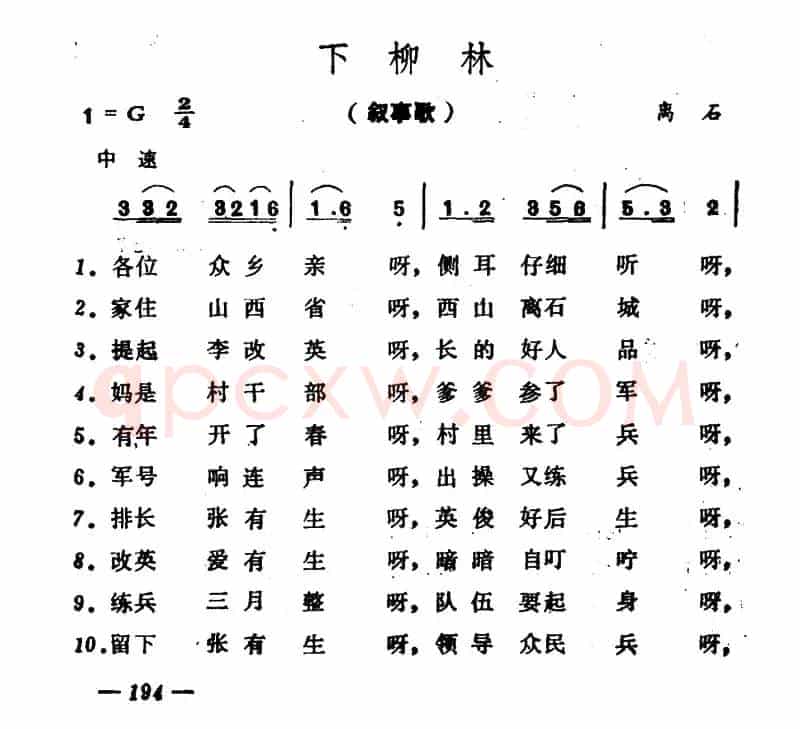 下柳林
1=G 2/4 （叙事歌） 离石
中速
3 3 2 3 2 1 6 | 1. 6 5 | 1. 2 3 5 6 | 5. 3 2 |
1.各位 众乡亲 呀，侧耳仔细听 呀，
2.家住 山西省 呀，西山离石城 呀，
3.提起 李改英 呀，长的好人品 呀，
4.妈是 村干部 呀，爹爹参了军 呀，
5.有年 开了春 呀，村里来了兵 呀，
6.军号 响连声 呀，出操又练兵 呀，
7.排长 张有生 呀，英俊好后生 呀，
8.改英 爱有生 呀，暗暗自叮咛 呀，
9.练兵 三月整 呀，队伍要起身 呀，
10.留下 张有生 呀，领导众民兵 呀，
— 194 —
qpcxw.COM